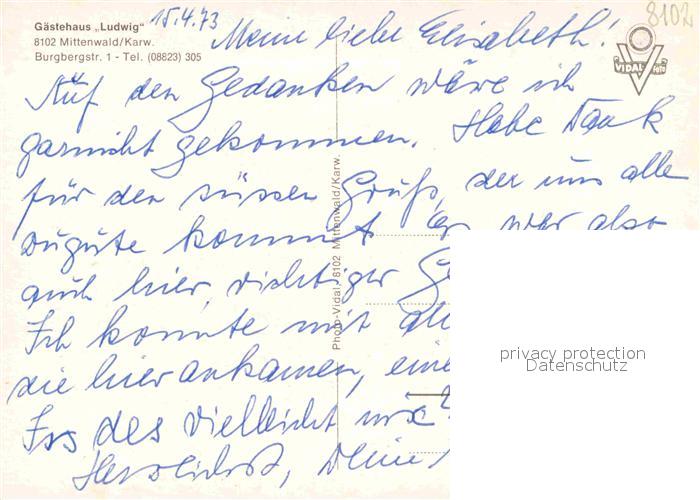 Gästehaus „Ludwig"
8102 Mittenwald/Karw.
Burgbergstr. 1 - Tel. (08823) 305
15.4.73
8102
VIDAL
Meine liebe Elisabeth!
Auf den Gedanken wäre ich
garnicht gekommen. Habe Dank
für den süssen Gruß, der uns alle
zugute kommt. Er war also
auch hier, richtiger
Ich konnte mit
die hier ankamen, eine
Iss des vielleicht nix?
Herzlichst, Deine
Photo-Vidal, 8102 Mittenwald/Karw.
privacy protection
Datenschutz